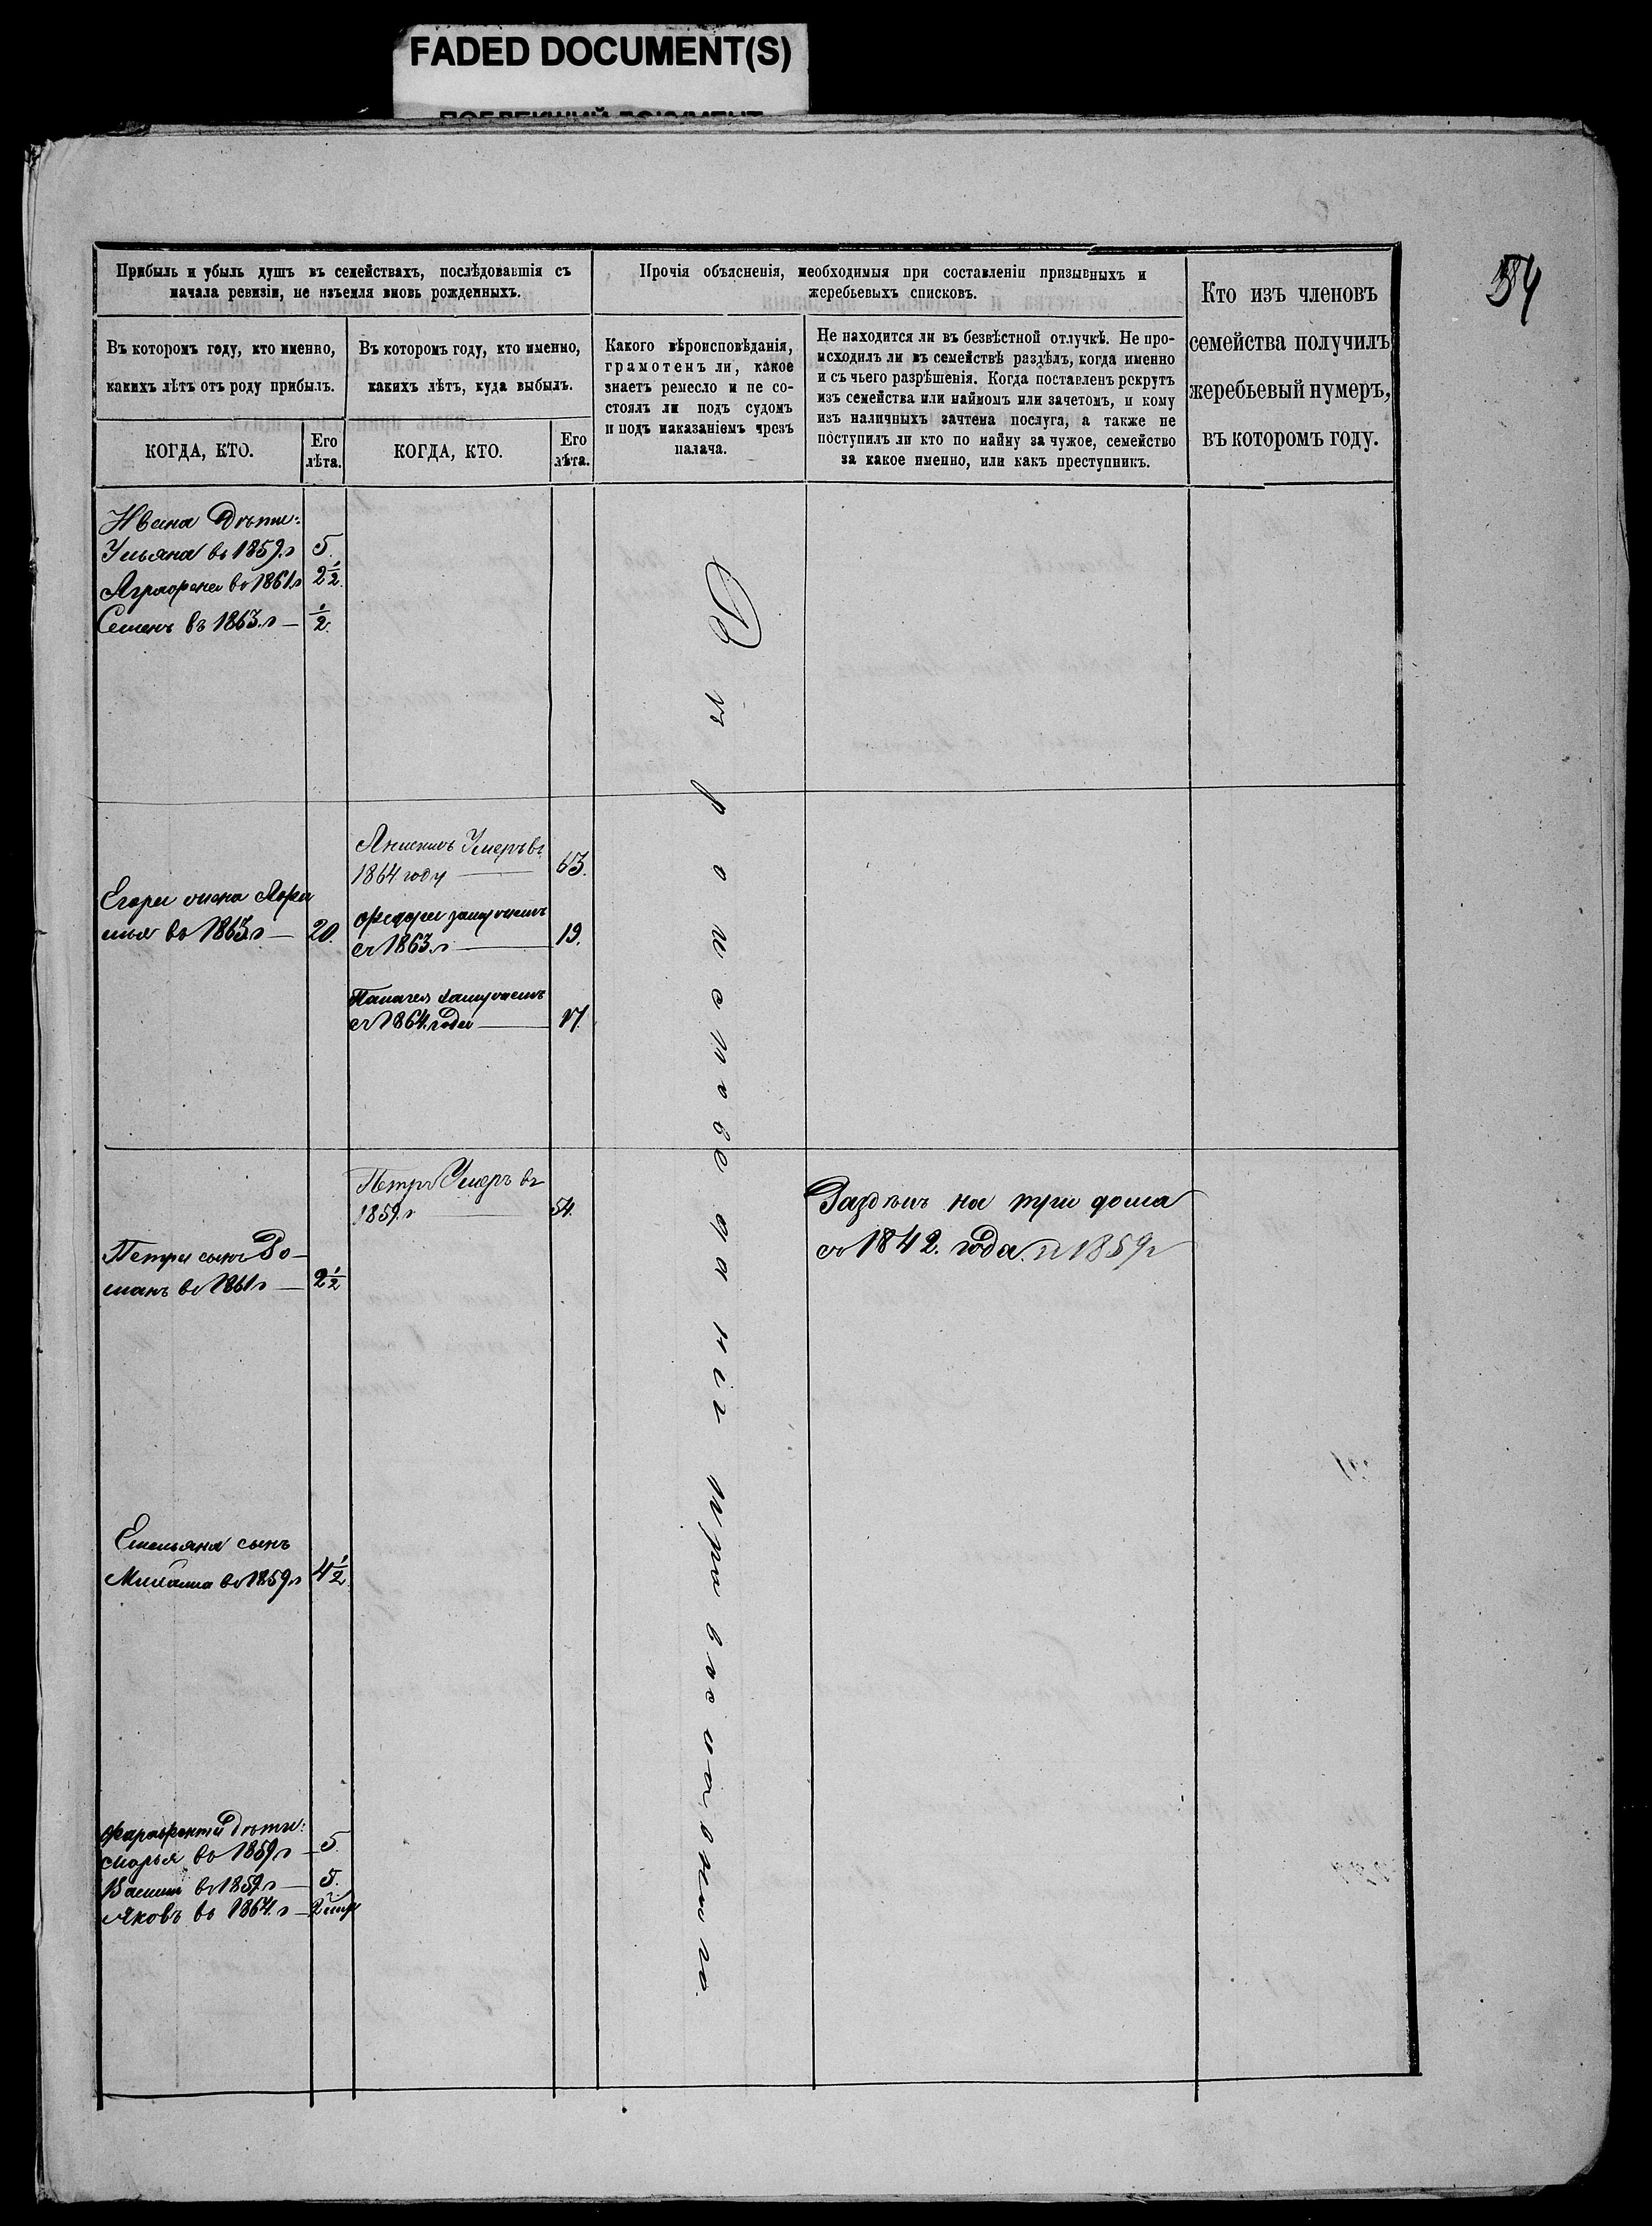 FADED DOCUMENT(S)
54
Прибыль и убыль душъ въ семействахъ, послѣдовавшія съ
начала ревизіи, не изъемля вновь рожденныхъ.
Въ которомъ году, кто именно,
какихъ лѣтъ отъ роду прибылъ.
Въ которомъ году, кто именно,
какихъ лѣтъ, куда выбылъ.
КОГДА, КТО.
Его
лѣта.
КОГДА, КТО.
Его
лѣта.
Прочія объясненія, необходимыя при составленіи призывныхъ и
жеребьевыхъ списковъ.
Какого вѣроисповѣданія,
грамотенъ ли, какое
знаетъ ремесло и не со-
стоялъ ли подъ судомъ
и подъ наказаніемъ чрезъ
палача.
Не находится ли въ безвѣстной отлучкѣ. Не про-
исходилъ ли въ семействѣ раздѣлъ, когда именно
и съ чьего разрѣшенія. Когда поставленъ рекрутъ
изъ семейства или наймомъ или зачетомъ, и кому
изъ наличныхъ зачтена послуга, а также не
поступилъ ли кто по найму за чужое, семейство
за какое именно, или какъ преступникъ.
Кто изъ членовъ
семейства получилъ
жеребьевый нумеръ,
въ которомъ году.
Ивана Дѣти:
Ульяна въ 1859.г 5.
Аграфена въ 1861.г 2½.
Семенъ въ 1863.г — ½.
Умеръ въ
1864 году — 63.
Егора жена
въ 1863.г — 20.
замужемъ
съ 1863.г — 19.
замужемъ
съ 1864. года — 17.
Петръ Умеръ въ
1859.г — 54.
Петра сынъ Ро-
манъ въ 1861г — 2½
Емельяна сынъ
въ 1859.г 4½
Дѣти:
Марья въ 1859.г — 5.
въ 1859.г — 5.
Яковъ въ 1864.г —
Вѣроисповеданія православнаго
Раздѣлъ на три дома
съ 1842. года. и 1859г